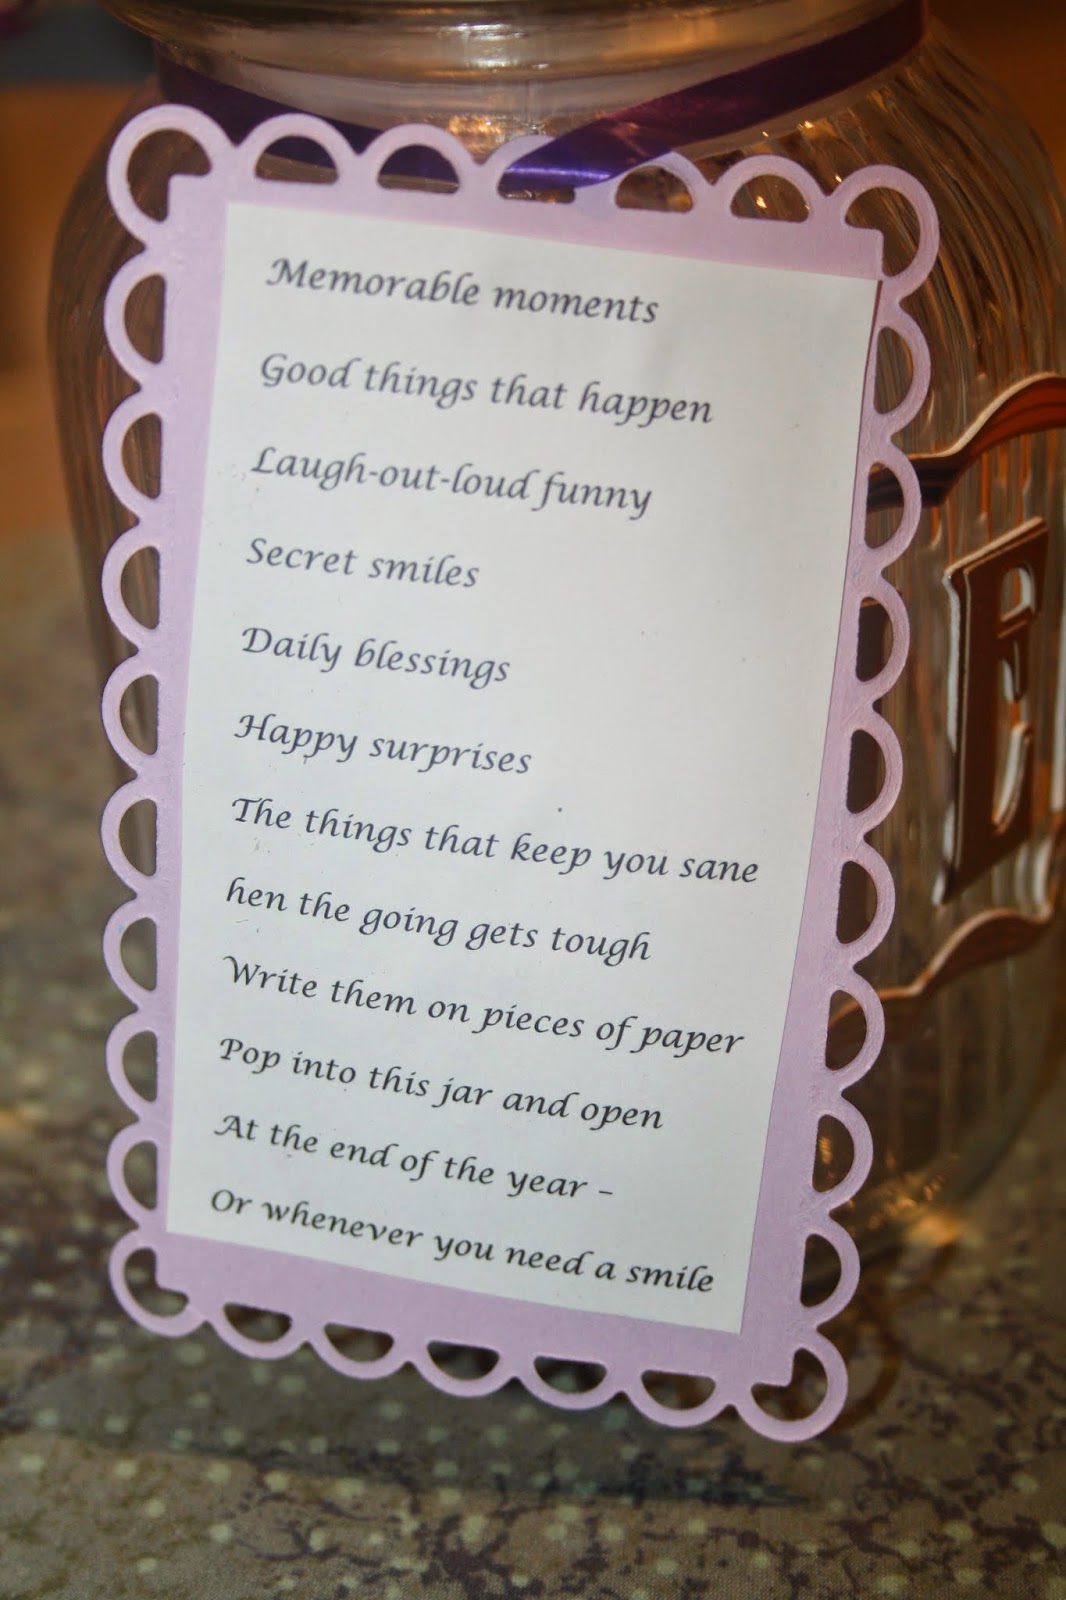 Memorable moments
Good things that happen
Laugh-out-loud funny
Secret smiles
Daily blessings
Happy surprises
The things that keep you sane
hen the going gets tough
Write them on pieces of paper
Pop into this jar and open
At the end of the year –
Or whenever you need a smile